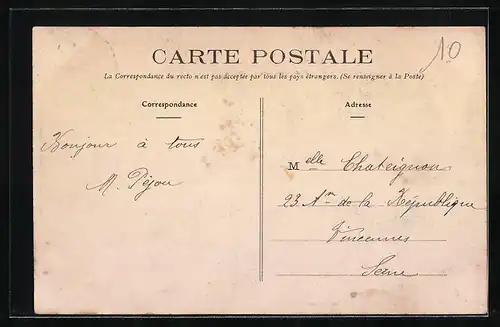 10
CARTE POSTALE
La Correspondance du recto n'est pas acceptée par tous les pays étrangers. (Se renseigner à la Poste)
Correspondance
Adresse
Bonjour à tous
M. Péjou
Melle Chateignon
23 Av. de la République
Vincennes
Seine